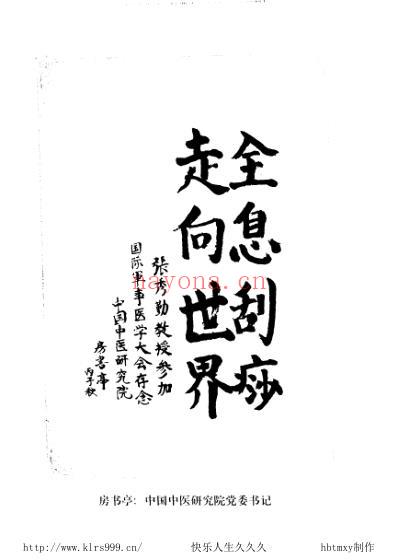 全息刮痧
走向世界
張秀勤教授参加
国际军事医学大会存念
中国中医研究院
房書亭
丙子秋
nayona.cn
房书亭：中国中医研究院党委书记
http://www.klrs999.cn/
快乐人生久久久
hbtmxy制作